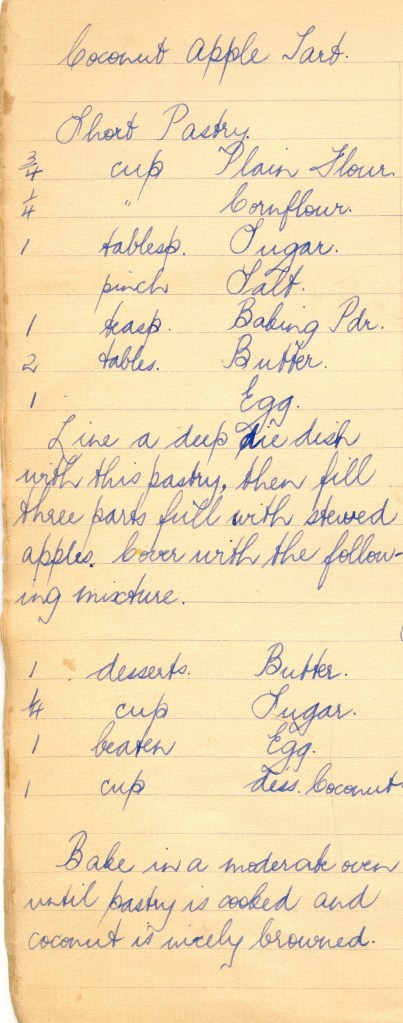 Coconut Apple Tart.
Short Pastry.
3/4 cup Plain Flour.
1/4 " Cornflour.
1 tablesp. Sugar.
pinch Salt.
1 teasp. Baking Pdr.
2 tables. Butter.
1 Egg.
Line a deep pie dish
with this pastry, then fill
three parts full with stewed
apples. Cover with the follow-
ing mixture.
1 desserts. Butter.
1/4 cup Sugar.
1 beaten Egg.
1 cup Dess. Coconut.
Bake in a moderate oven
until pastry is cooked and
coconut is nicely browned.